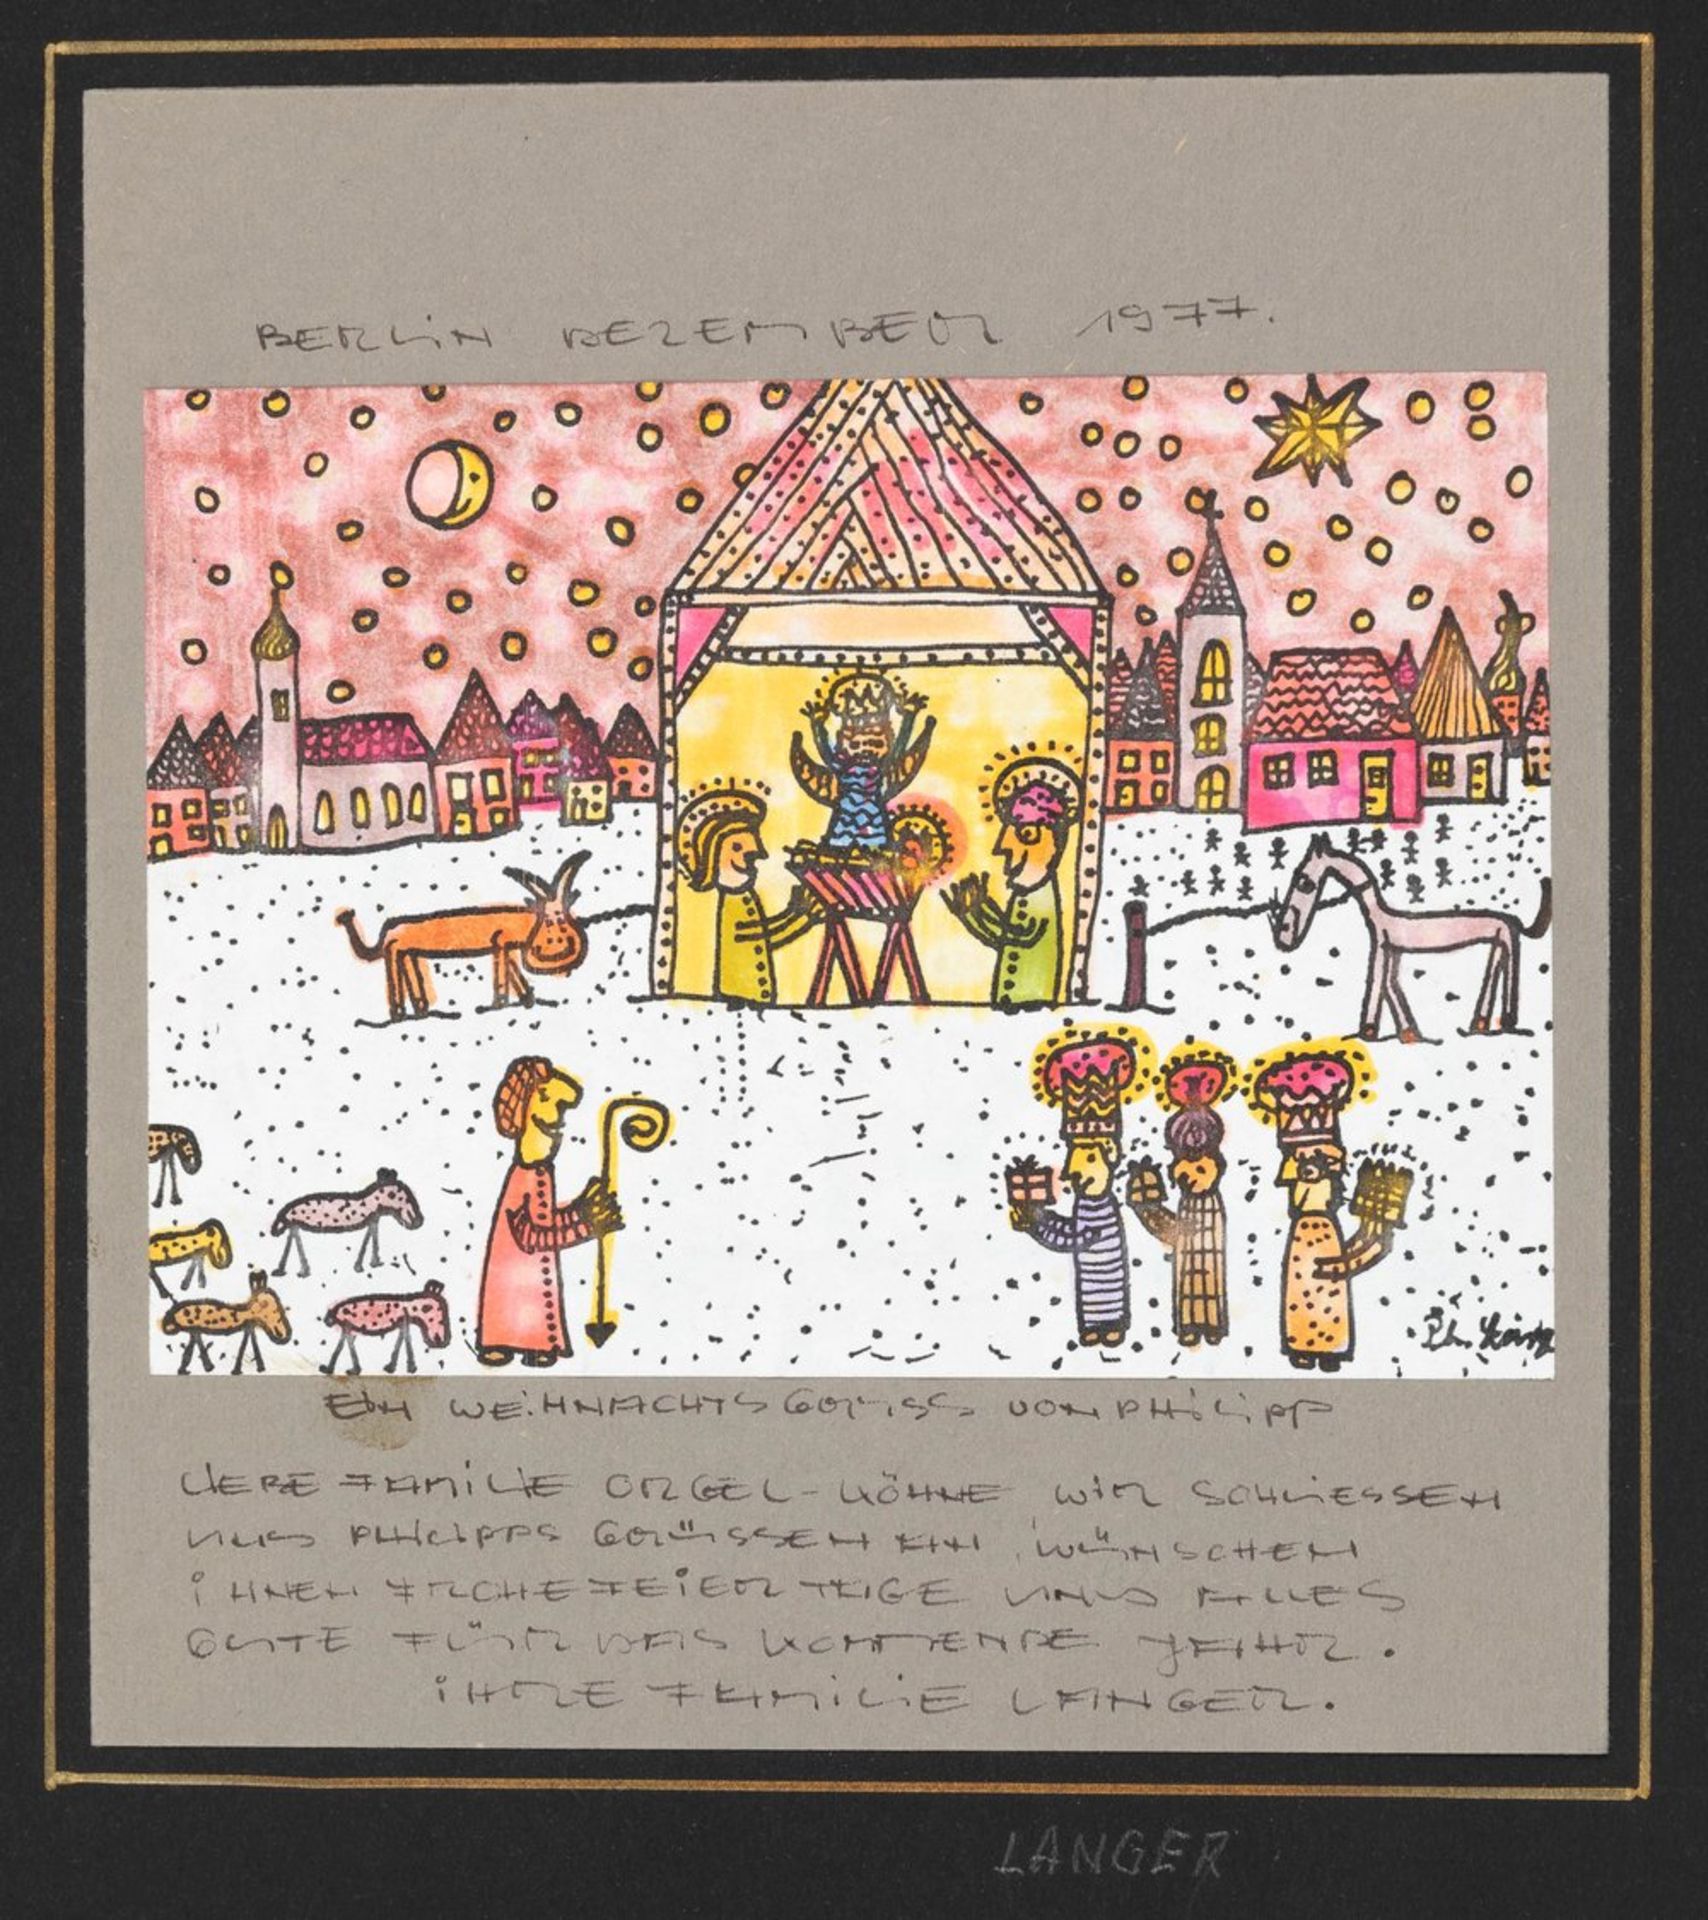 BERLIN DEZEMBER 1977.
EIN WEIHNACHTSGRUSS VON PHILIPP
LIEBE FAMILIE ORGEL-KÖHNE WIR SCHLIESSEN
UNS PHILIPPS GRÜSSEN AN, WÜNSCHEN
IHNEN FROHE FEIERTAGE UND ALLES
GUTE FÜR DAS KOMMENDE JAHR.
IHRE FAMILIE LANGER.
LANGER